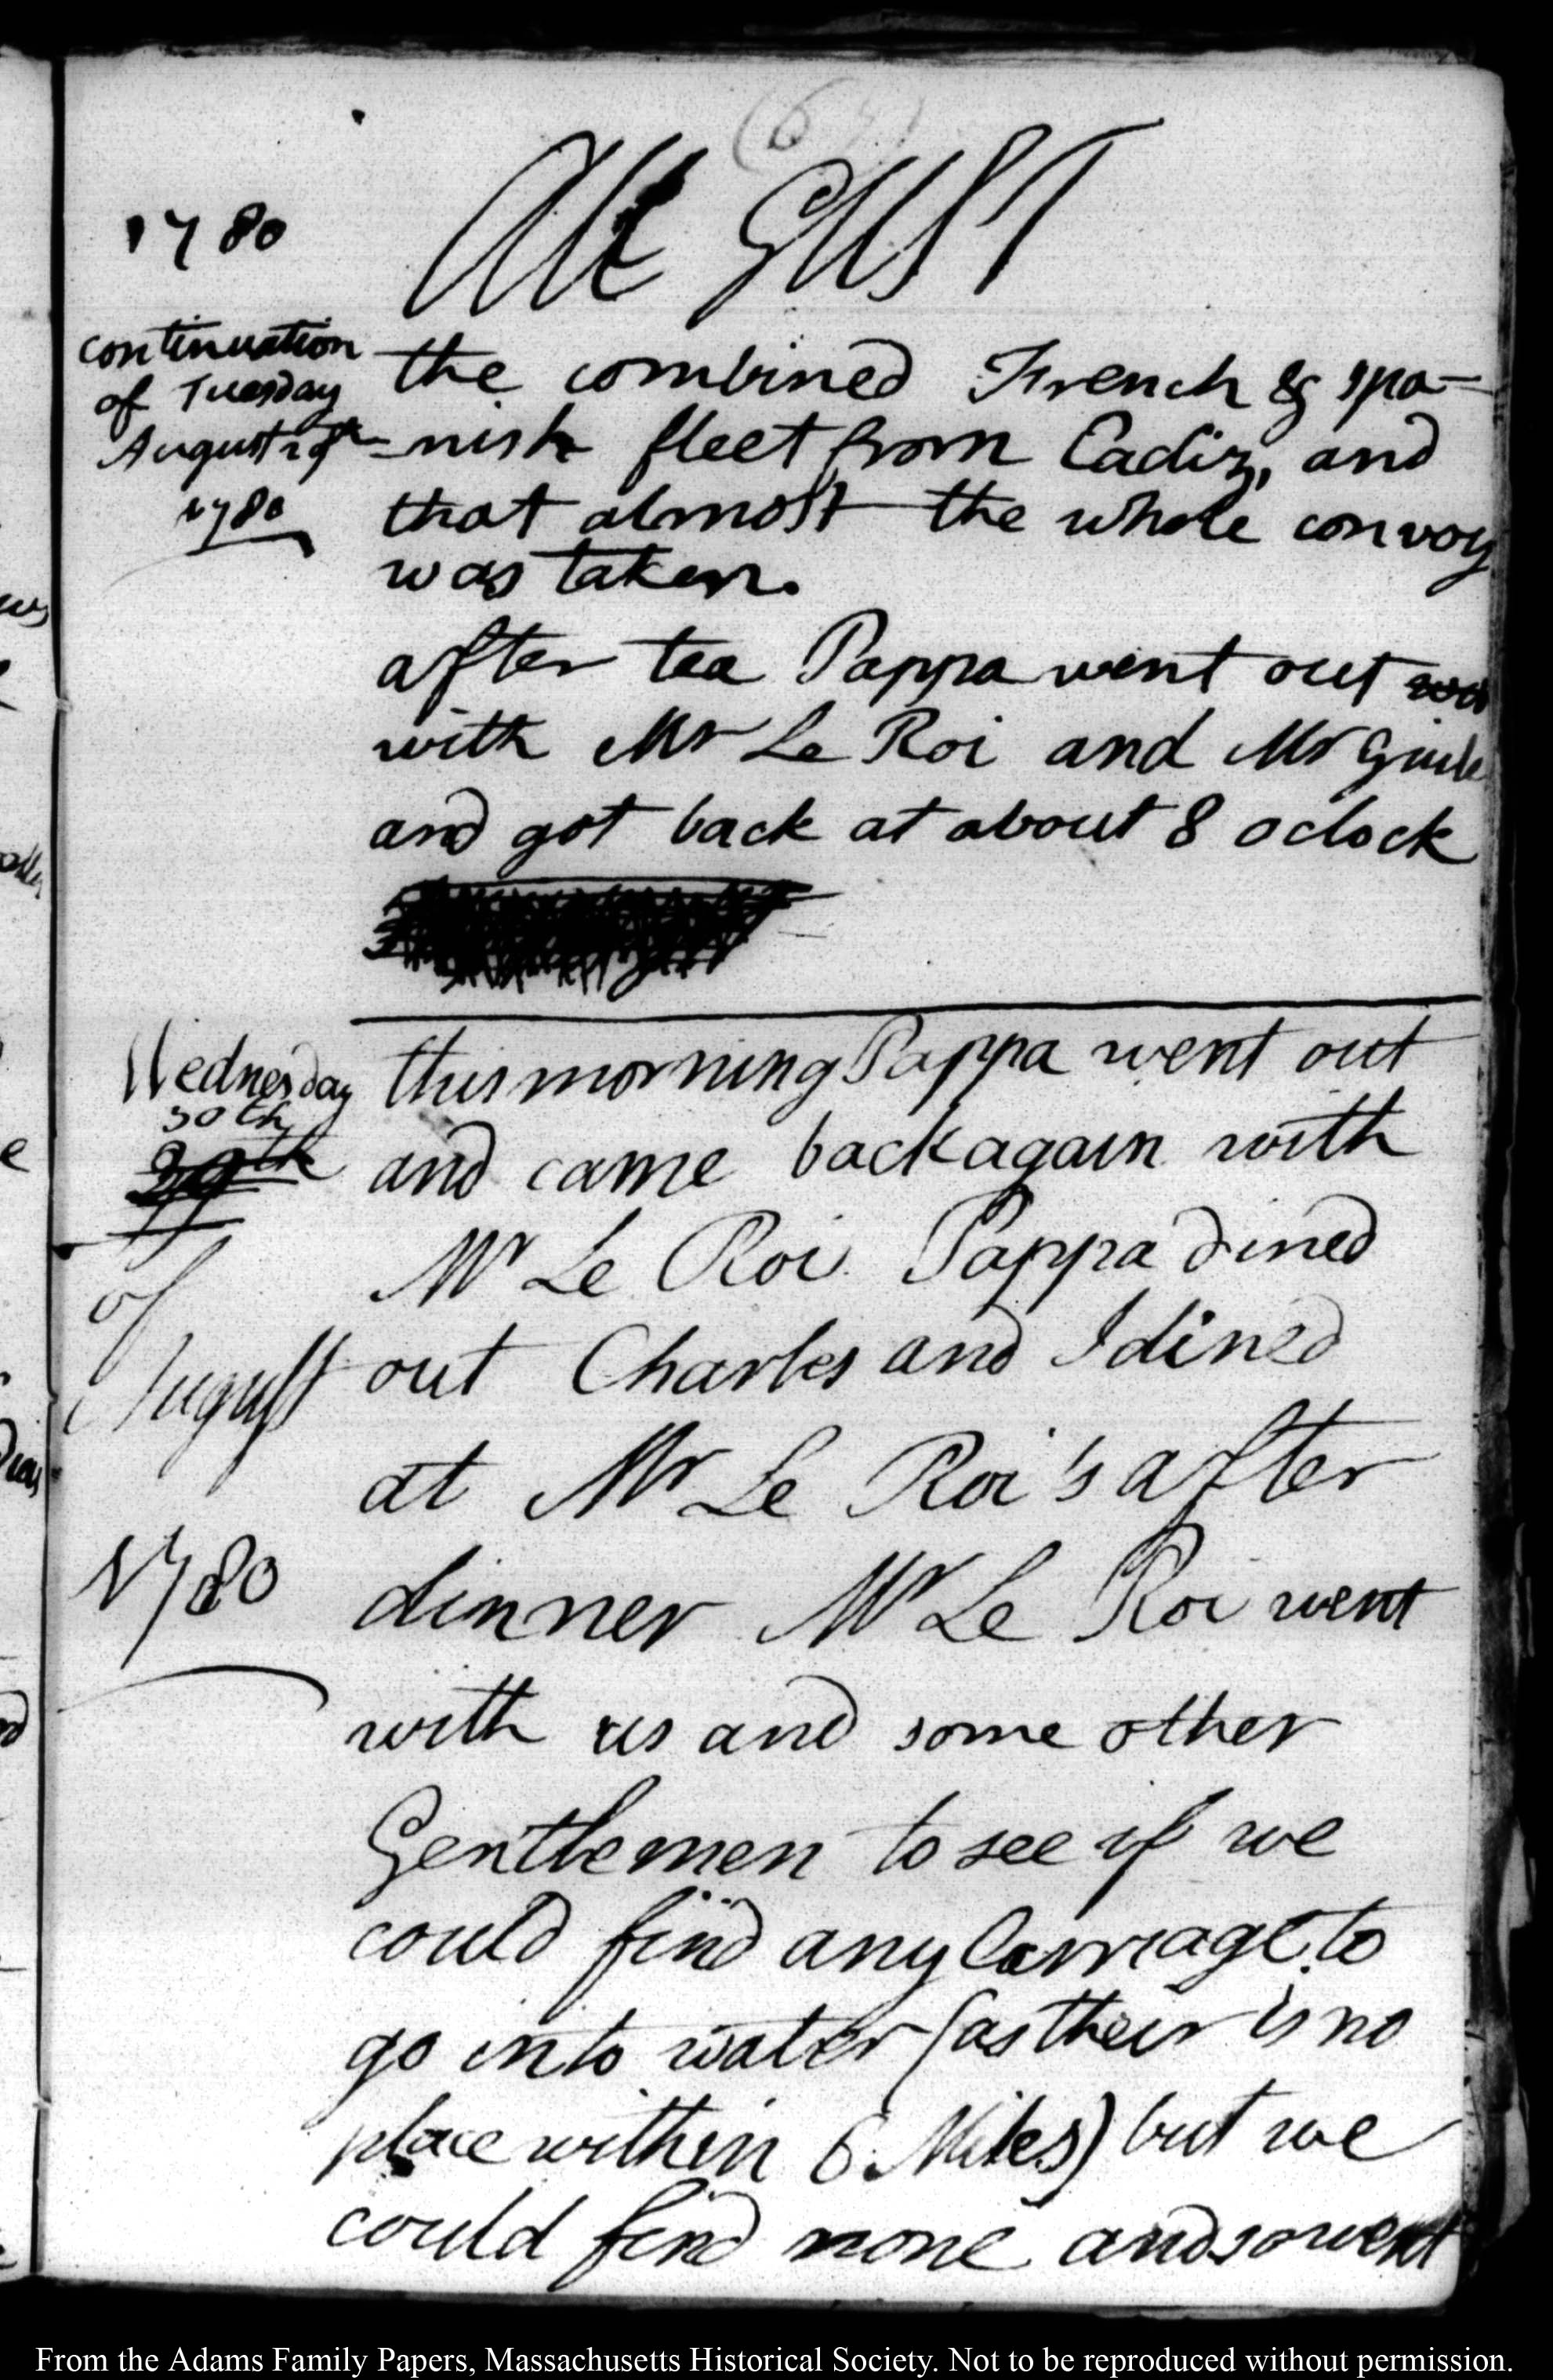 1780
AUGUST
continuation
of Tuesday
August 29th
1780
the combined French & spa-
-nish fleet from Cadiz, and
that almost the whole convoy
was taken.
after tea Pappa went out
with Mr Le Roi and Mr
and got back at about 8 oclock
Wednesday
30th
29th
of
August
1780
this morning Pappa went out
and came back again with
Mr Le Roi. Pappa dined
out Charles and I dined
at Mr Le Roi's after
dinner Mr Le Roi went
with us and some other
Gentlemen to see if we
could find any Carriage to
go into water (as their is no
place within 6 Miles) but we
could find none and so went
From the Adams Family Papers, Massachusetts Historical Society. Not to be reproduced without permission.